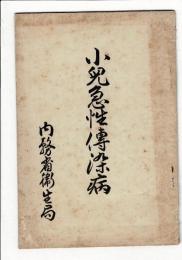 小兒急性傳染病
內務省衞生局